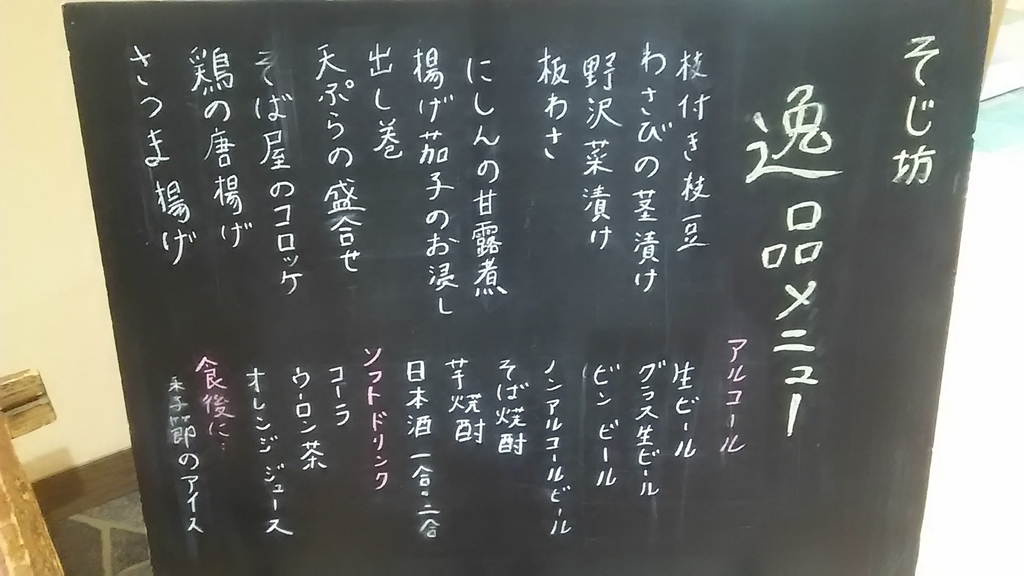 そじ坊
逸品メニュー
枝付き枝豆
わさびの茎漬け
野沢菜漬け
板わさ
にしんの甘露煮
揚げ茄子のお浸し
出し巻
天ぷらの盛合せ
そば屋のコロッケ
鶏の唐揚げ
さつま揚げ
アルコール
生ビール
グラス生ビール
ビンビール
ノンアルコールビール
そば焼酎
芋焼酎
日本酒 一合・二合
ソフトドリンク
コーラ
ウーロン茶
オレンジジュース
食後に
季節のアイス